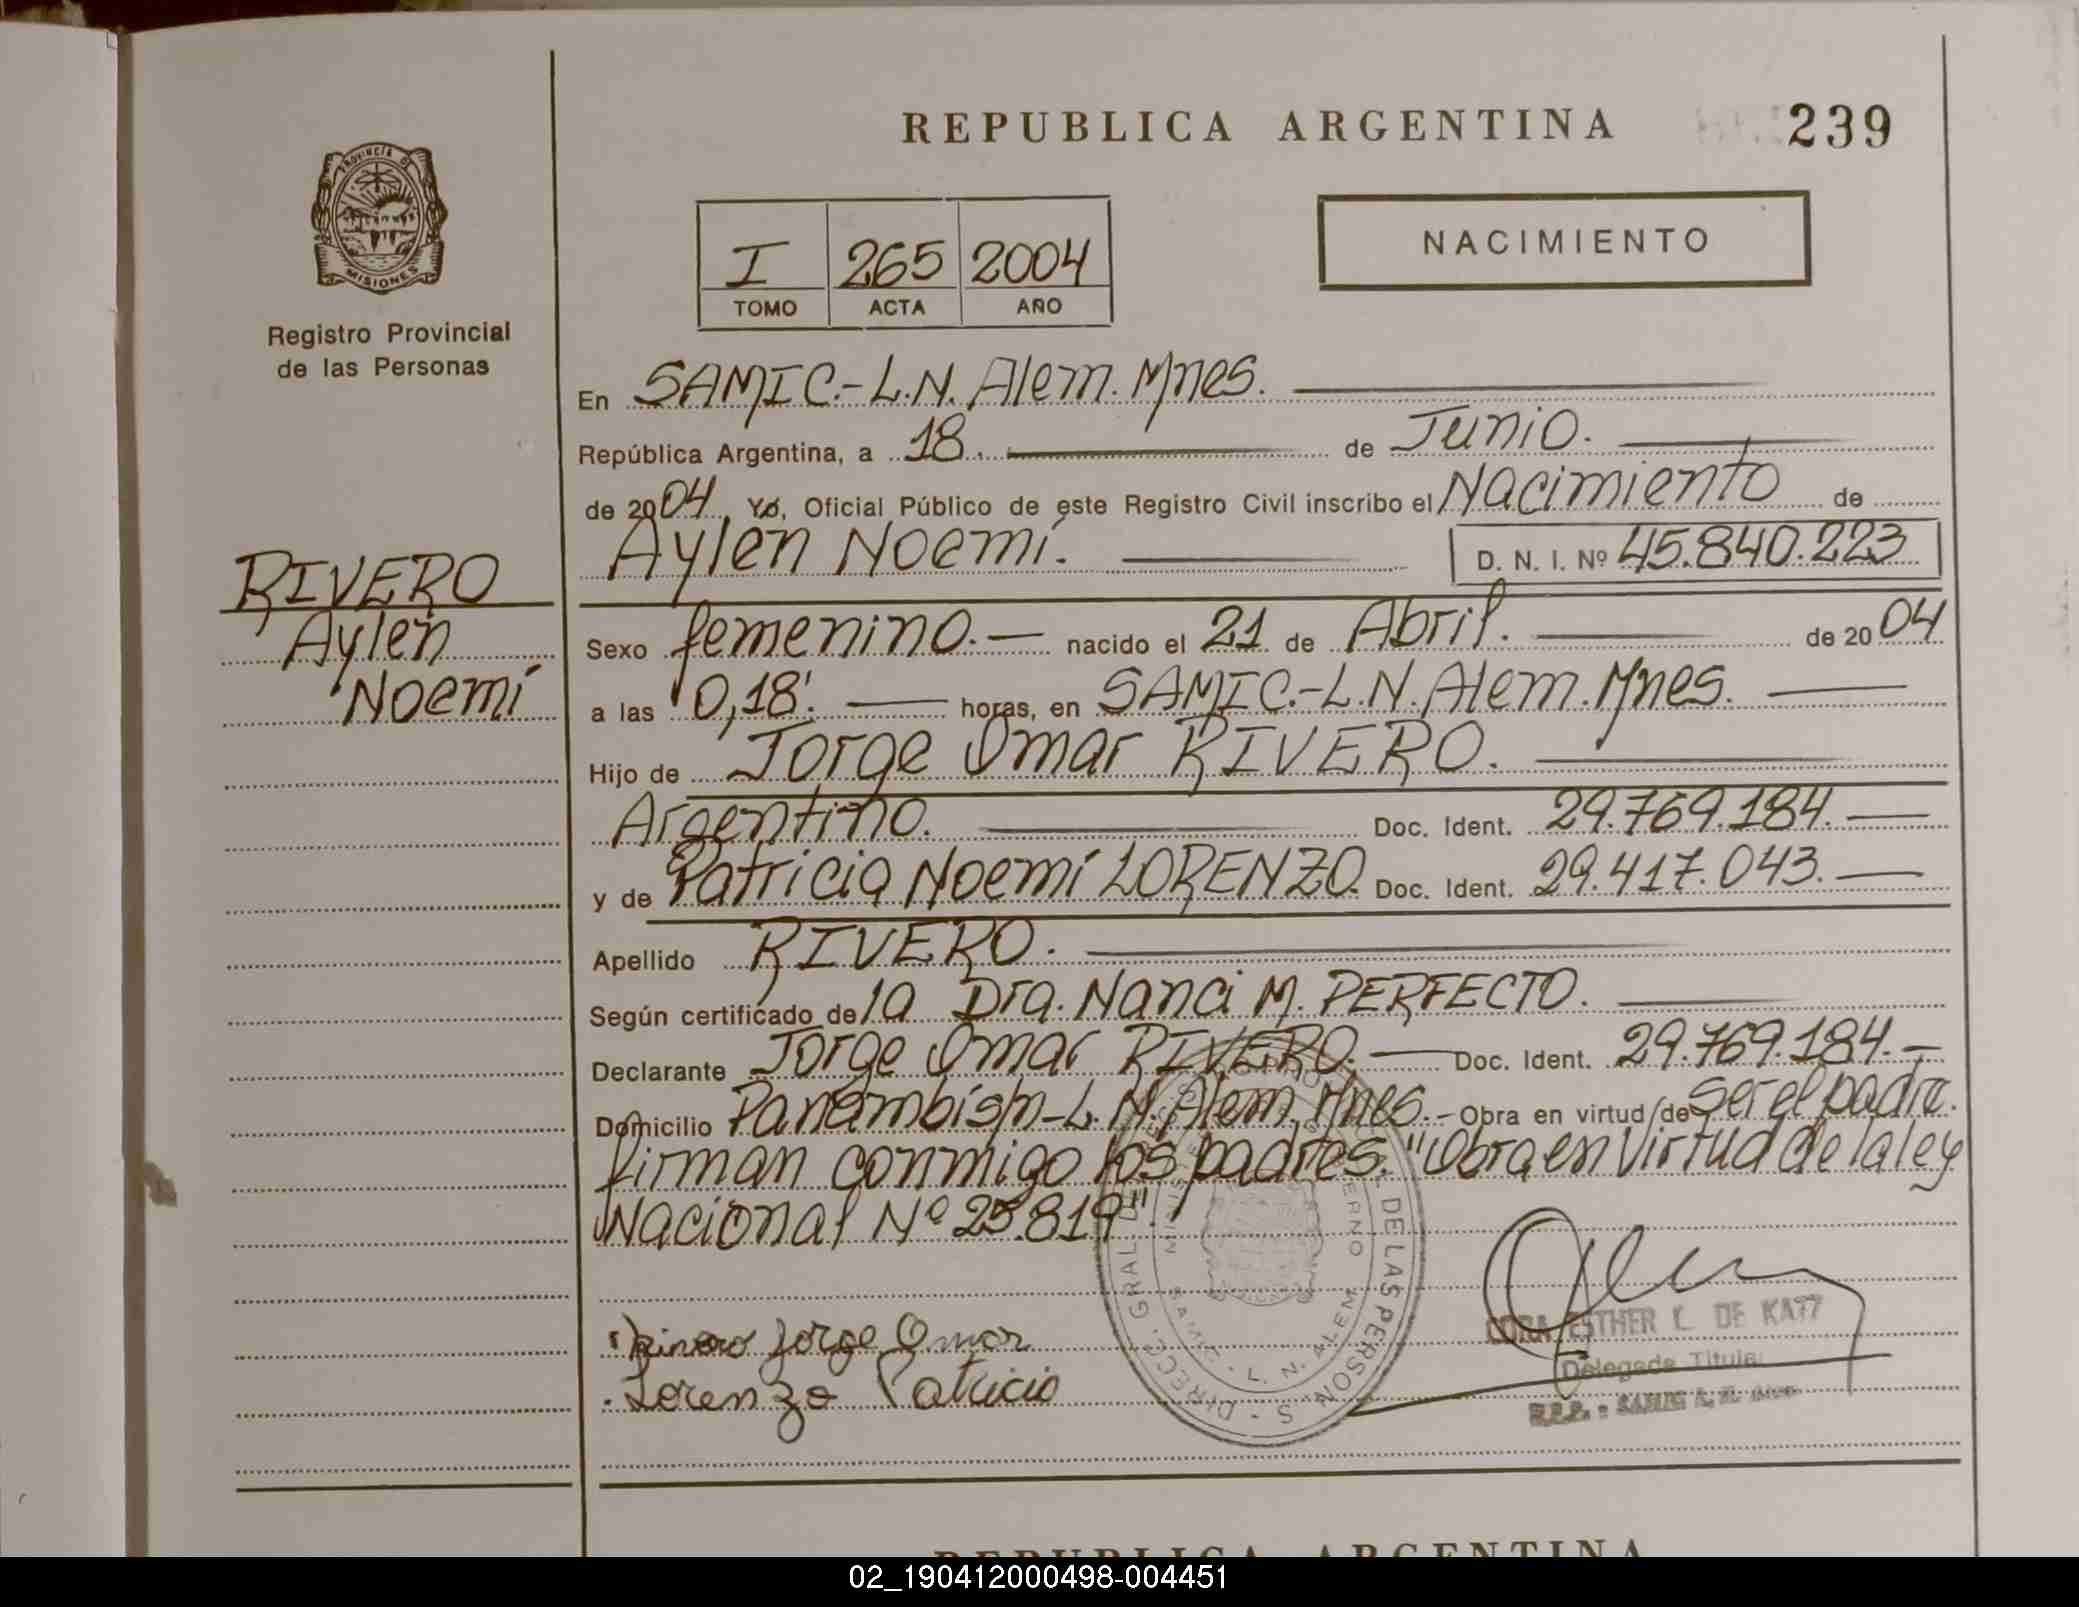 REPUBLICA ARGENTINA 239
PROVINCIA DE
MISIONES
Registro Provincial
de las Personas
I 265 2004
TOMO ACTA AÑO
NACIMIENTO
En SAMIC.-L.N. Alem. Mnes.
República Argentina, a 18. de Junio.
de 2004 Yo, Oficial Público de este Registro Civil inscribo el Nacimiento de
Aylen Noemí. D. N. I. Nº 45.840.223
RIVERO
Aylen
Noemí
Sexo femenino.- nacido el 21 de Abril. de 2004
a las 0,18'. horas, en SAMIC.-L.N. Alem. Mnes.
Hijo de Jorge Omar RIVERO.
Argentino. Doc. Ident. 29.769.184.
y de Patricia Noemí LORENZO. Doc. Ident. 29.417.043.
Apellido RIVERO.
Según certificado de la Dra. Nanci M. PERFECTO.
Declarante Jorge Omar RIVERO. Doc. Ident. 29.769.184.-
Domicilio L.N. Alem. Mnes.- Obra en virtud de ser el padre.
firman conmigo los padres. "Obra en Virtud de la ley
Nacional Nº 25.819".
Rivero Jorge Omar
Lorenzo Patricia
DIREC. GRAL. DE LAS PERSONAS
SAMIC - L. N. ALEM
ESTHER L. DE KATZ
Delegada Titular
REPUBLICA ARGENTINA
02_190412000498-004451